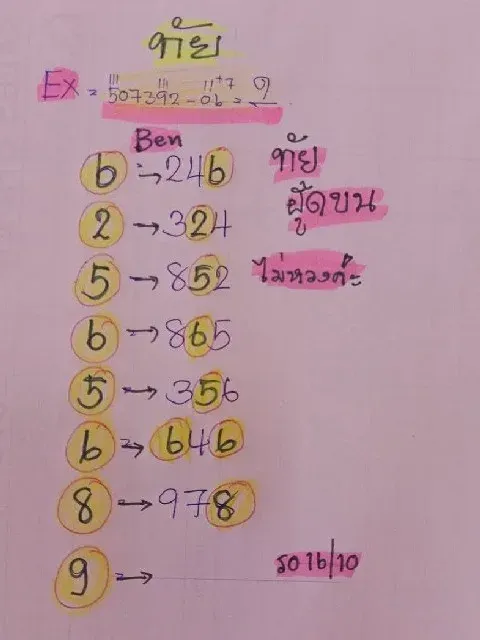 ทัย
Ex = 507392 - 06 = 9
Ben
6 → 246
ทัย
2 → 324
ผู้ดขน
5 → 852
ไม่หวงค๊ะ
6 → 865
5 → 356
6 → 646
8 → 978
9 →
รอ 16/10